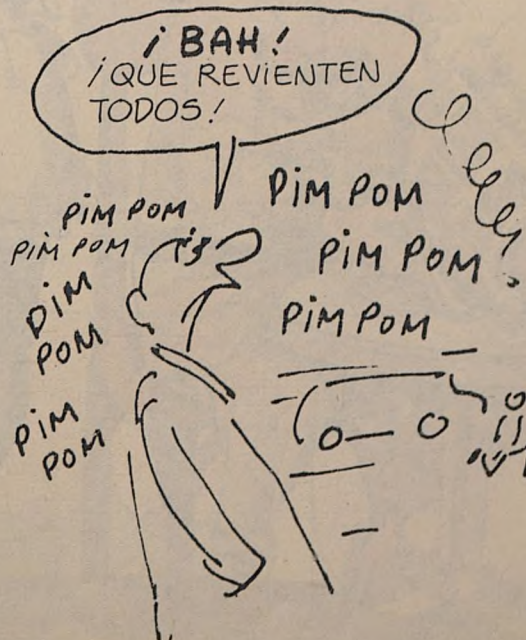 ¡BAH!
¡QUE REVIENTEN
TODOS!
PIM POM
PIM POM
PIM POM
PIM POM
PIM POM
DIM
POM
PIM
POM